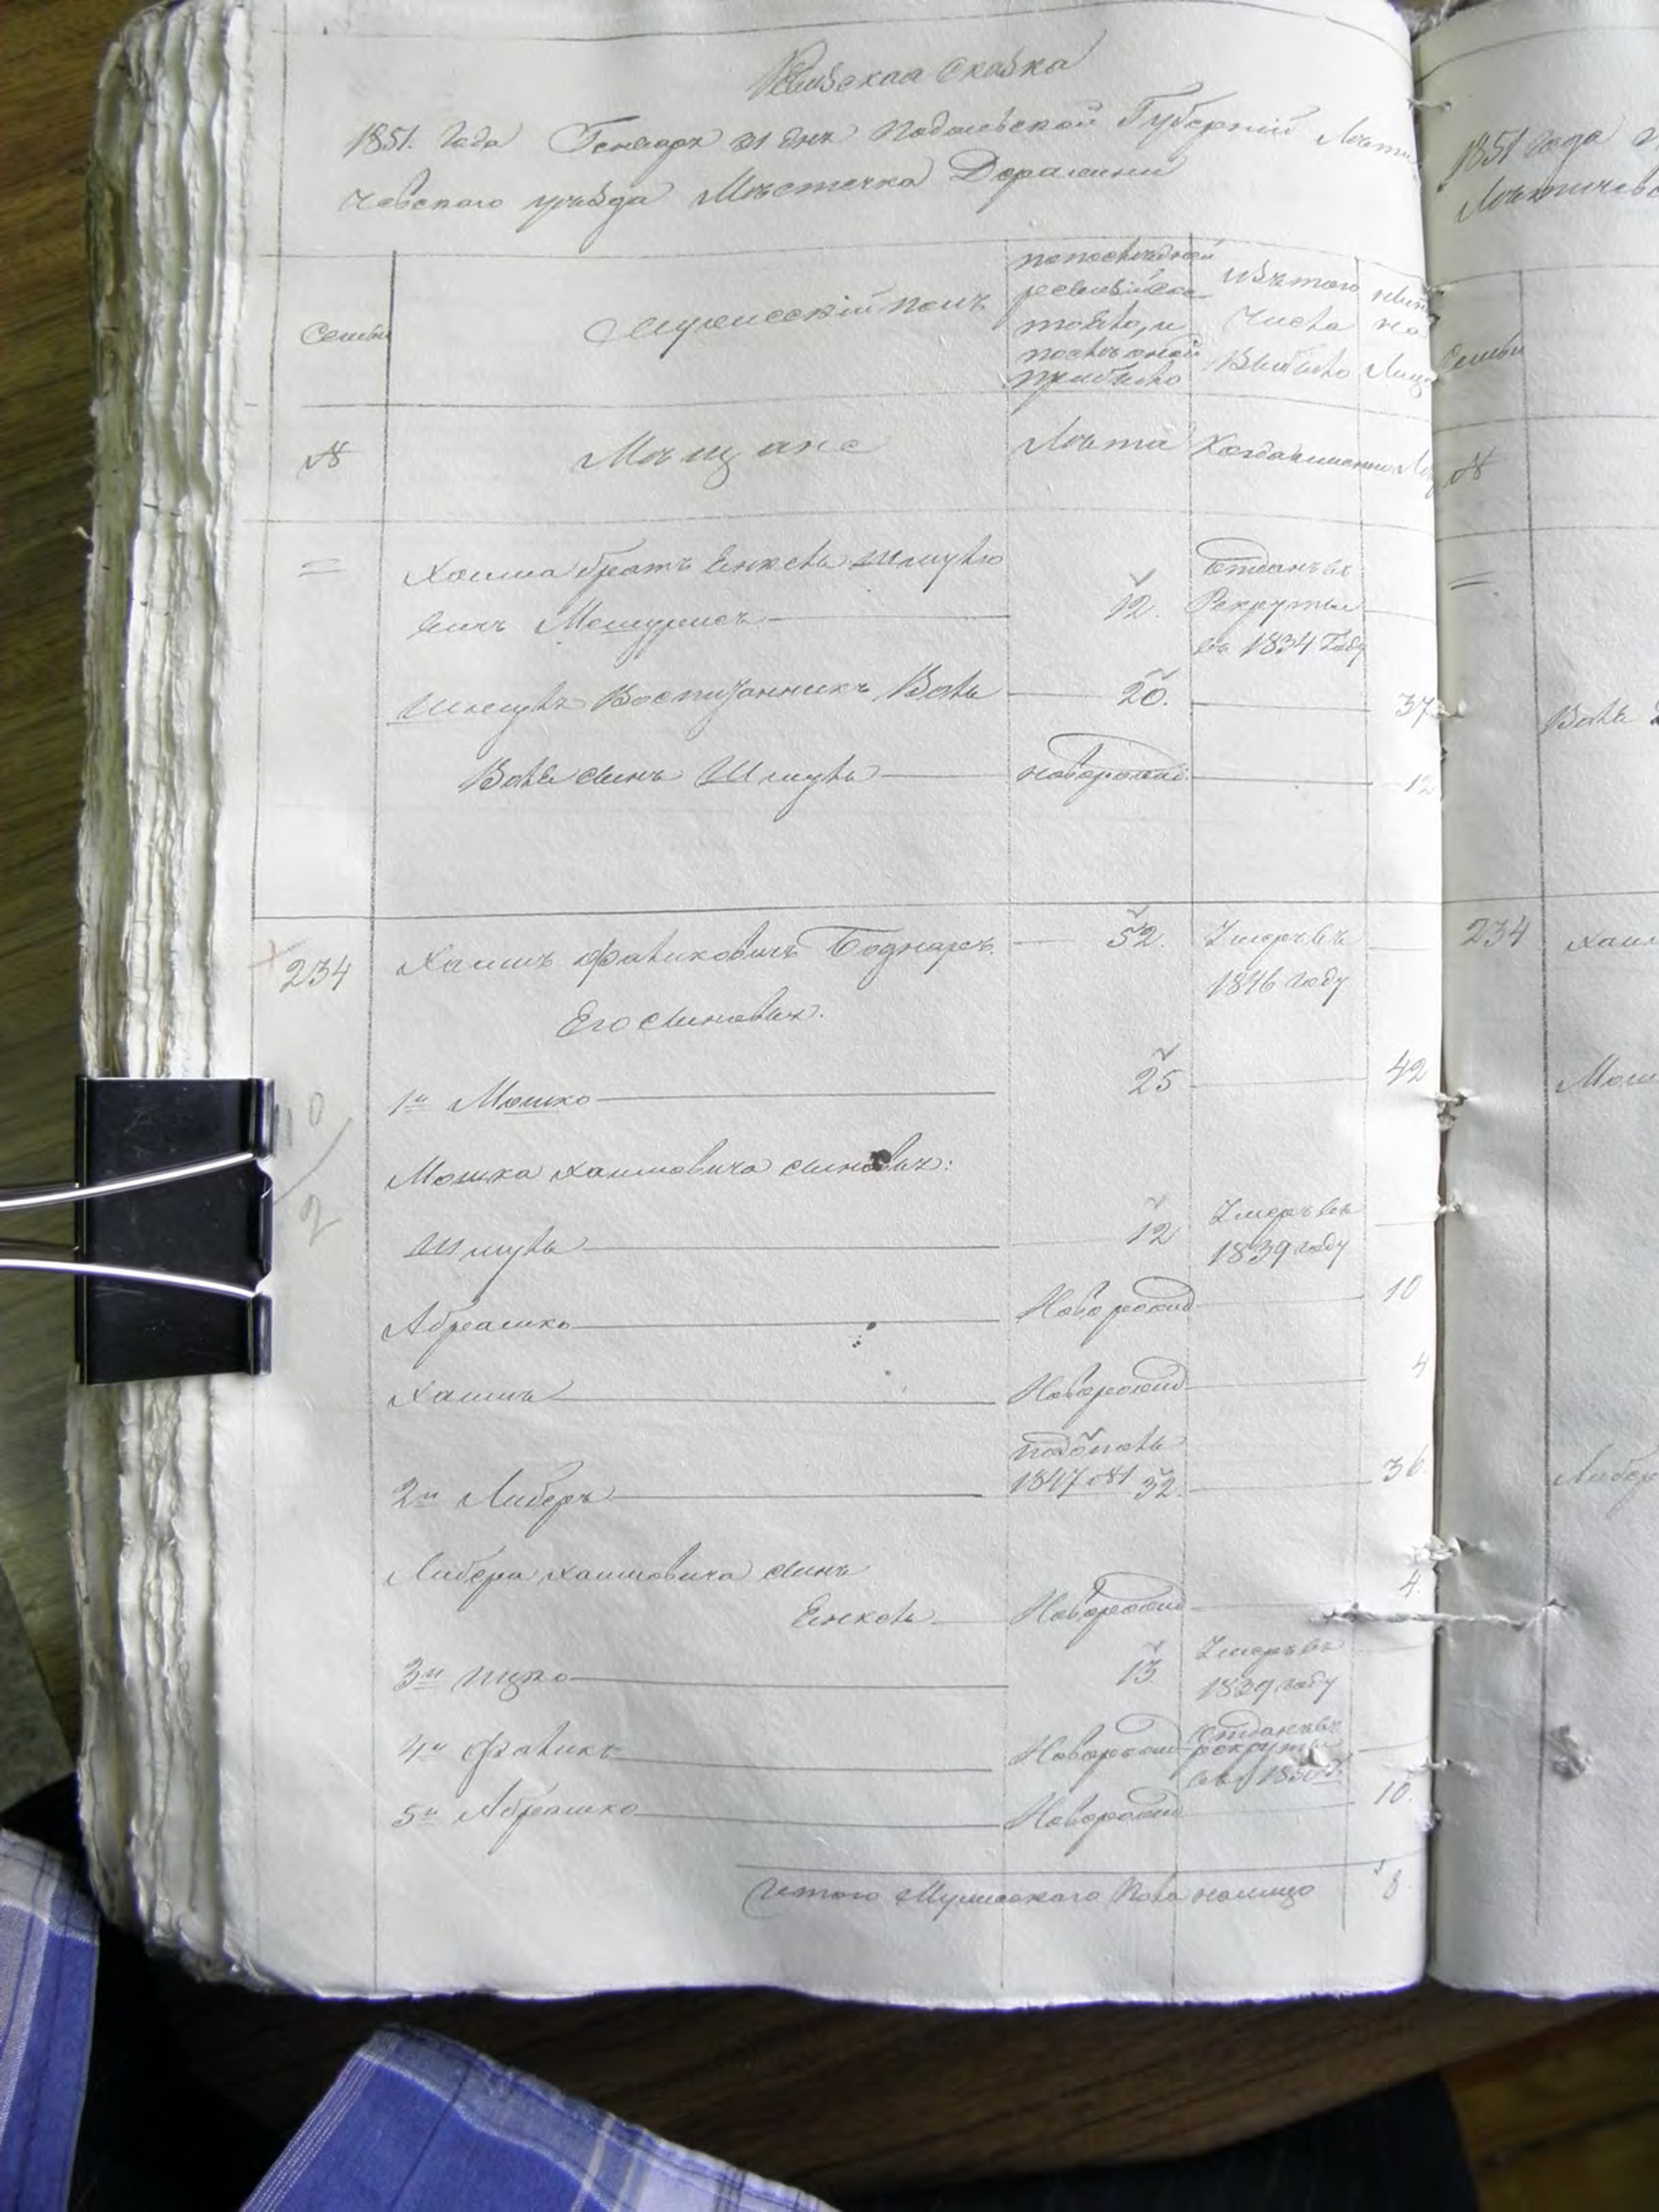 Ревизская сказка
1851. Года Генваря 31 дня Подольской Губерніи Лети
чевского уѣзда Мѣстечка Деражни
Семьи
Мужескій полъ
по последней
ревизіи со
стояло, и
после оной
прибыло
Изъ того
Числа
Выбыло
ныне
на
Лицо
№
Мѣщане
Лѣта
Когда именно
=
Хаима братъ Янкель Шмулю
вичъ Мошурисъ
12.
Отданъ въ
Рекруты
въ 1834 Году
Шмуль Воспитанникъ Воль
20.
37
Воля сынъ Шмуль
новорожд.
12
234
Хаимъ Фаликовичъ Боднаръ
52.
Умеръ въ
1846 году
Его сыновья.
1й Мошко
25
42
10
2
Мошка Хаимовича сыновья:
Шмуль
12
Умеръ въ
1839 году
Абрашко
Новорожд
10
Хаимъ
Новорожд
4
2й Либеръ
1847 №1 32.
36
Либера Хаимовича сынъ
Янкель
Новорожд
4.
3й Ицко
13.
Умеръ въ
1839 году
4й Фаликъ
Новорожд
Отданъ въ
рекруты
5й Абрашко
Новорожд
10.
Итого Мужеского Пола налицо
8
1851 года
Летичевс
Семьи
№
=
Воля
234
Хаим
Мош
Либер